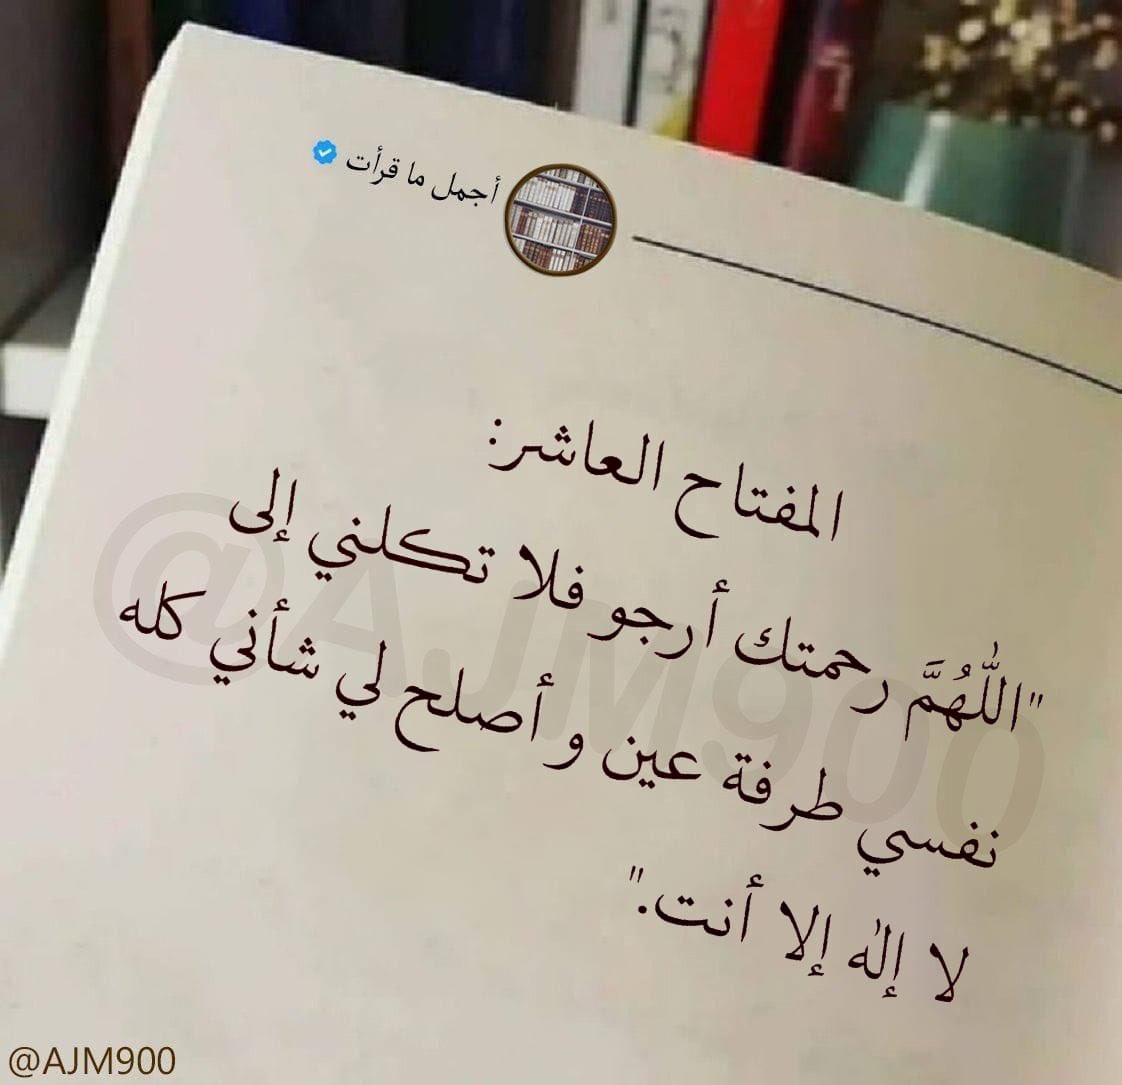 أجمل ما قرأت
المفتاح العاشر:
"اللّٰهُمَّ رحمتك أرجو فلا تكلني إلى
نفسي طرفة عين و أصلح لي شأني كله
لا إلٰه إلا أنت."
@AJM900
@AJM900